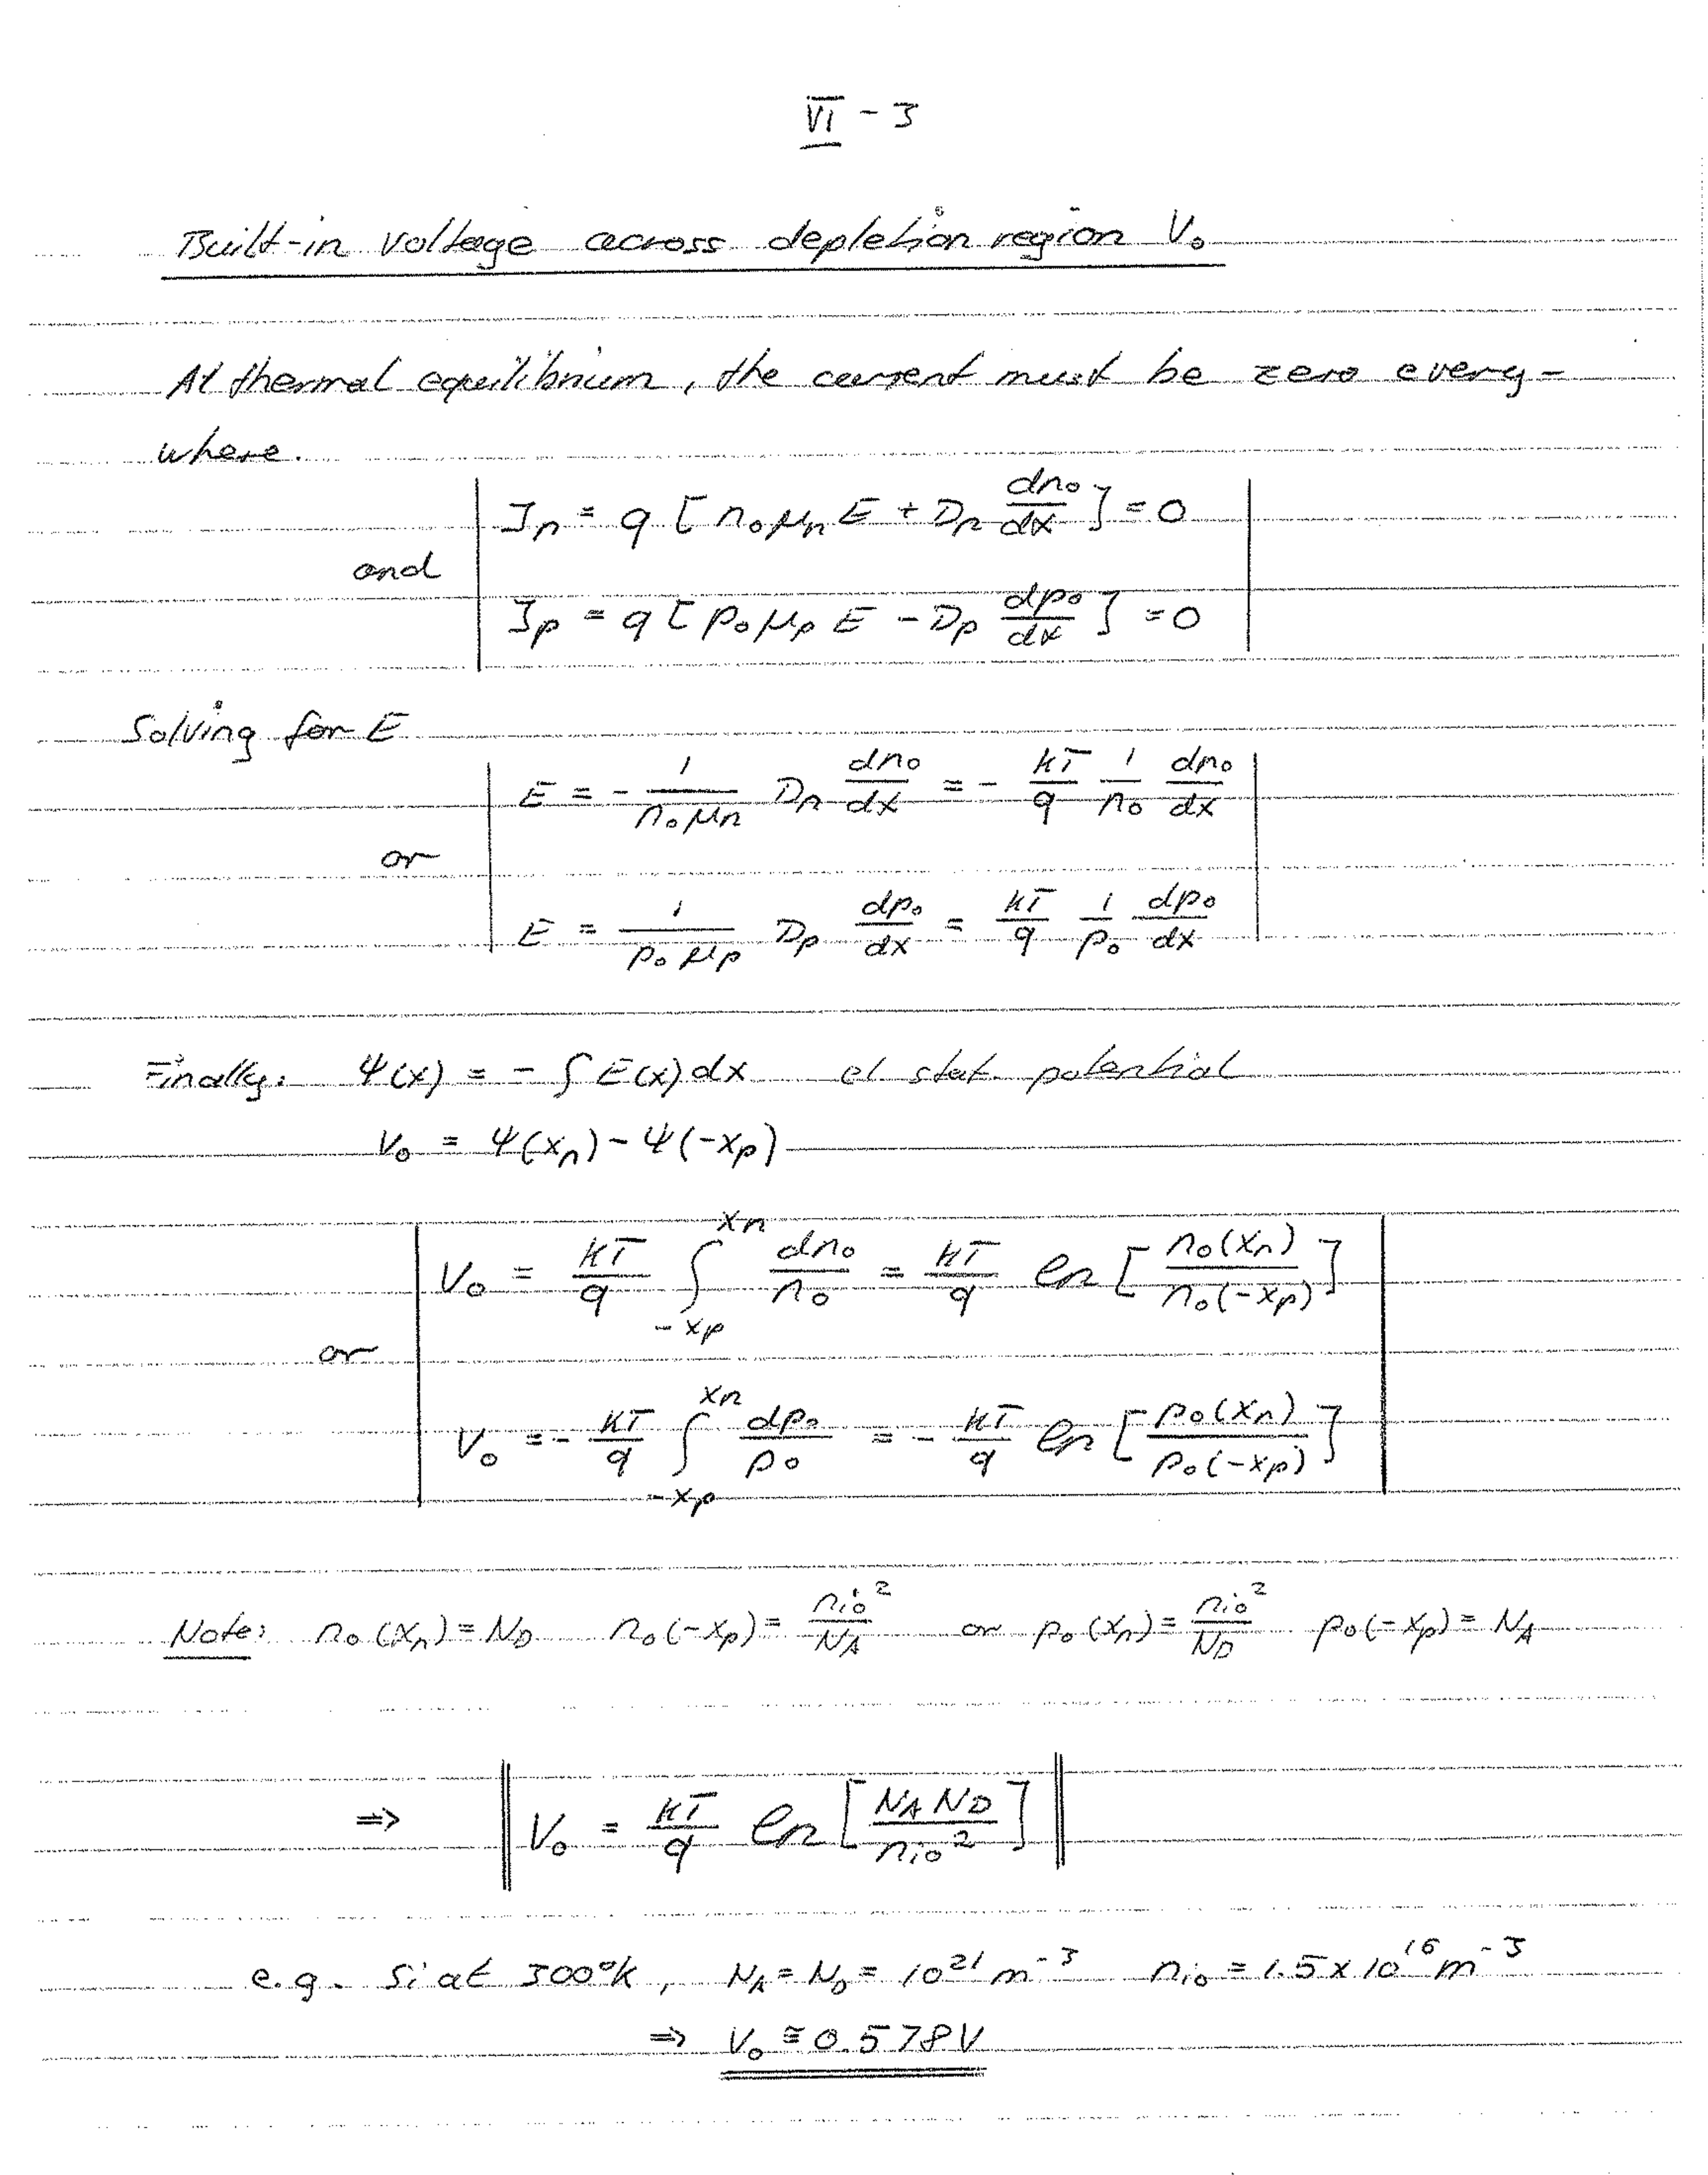 VI - 3
Built-in voltage across depletion region V₀
At thermal equilibrium, the current must be zero every-
where.
Jn = q [ n₀ μn E + Dn dn₀/dx ] = 0
and
Jp = q [ p₀ μp E - Dp dp₀/dx ] = 0
Solving for E
E = - 1/(n₀ μn) Dn dn₀/dx = - kT/q 1/n₀ dn₀/dx
or
E = 1/(p₀ μp) Dp dp₀/dx = kT/q 1/p₀ dp₀/dx
Finally: Ψ(x) = - ∫ E(x) dx el stat. potential
V₀ = Ψ(xn) - Ψ(-xp)
V₀ = kT/q ∫_{-xp}^{xn} dn₀/n₀ = kT/q ln [ n₀(xn)/n₀(-xp) ]
or
V₀ = - kT/q ∫_{-xp}^{xn} dp₀/p₀ = - kT/q ln [ p₀(xn)/p₀(-xp) ]
Note: n₀(xn) = ND n₀(-xp) = nio²/NA or p₀(xn) = nio²/ND p₀(-xp) = NA
⇒ V₀ = kT/q ln [ NA ND/nio² ]
e.g. Si at 300°k, NA = ND = 10²¹ m⁻³ nio = 1.5 x 10¹⁶ m⁻³
⇒ V₀ ≅ 0.578V